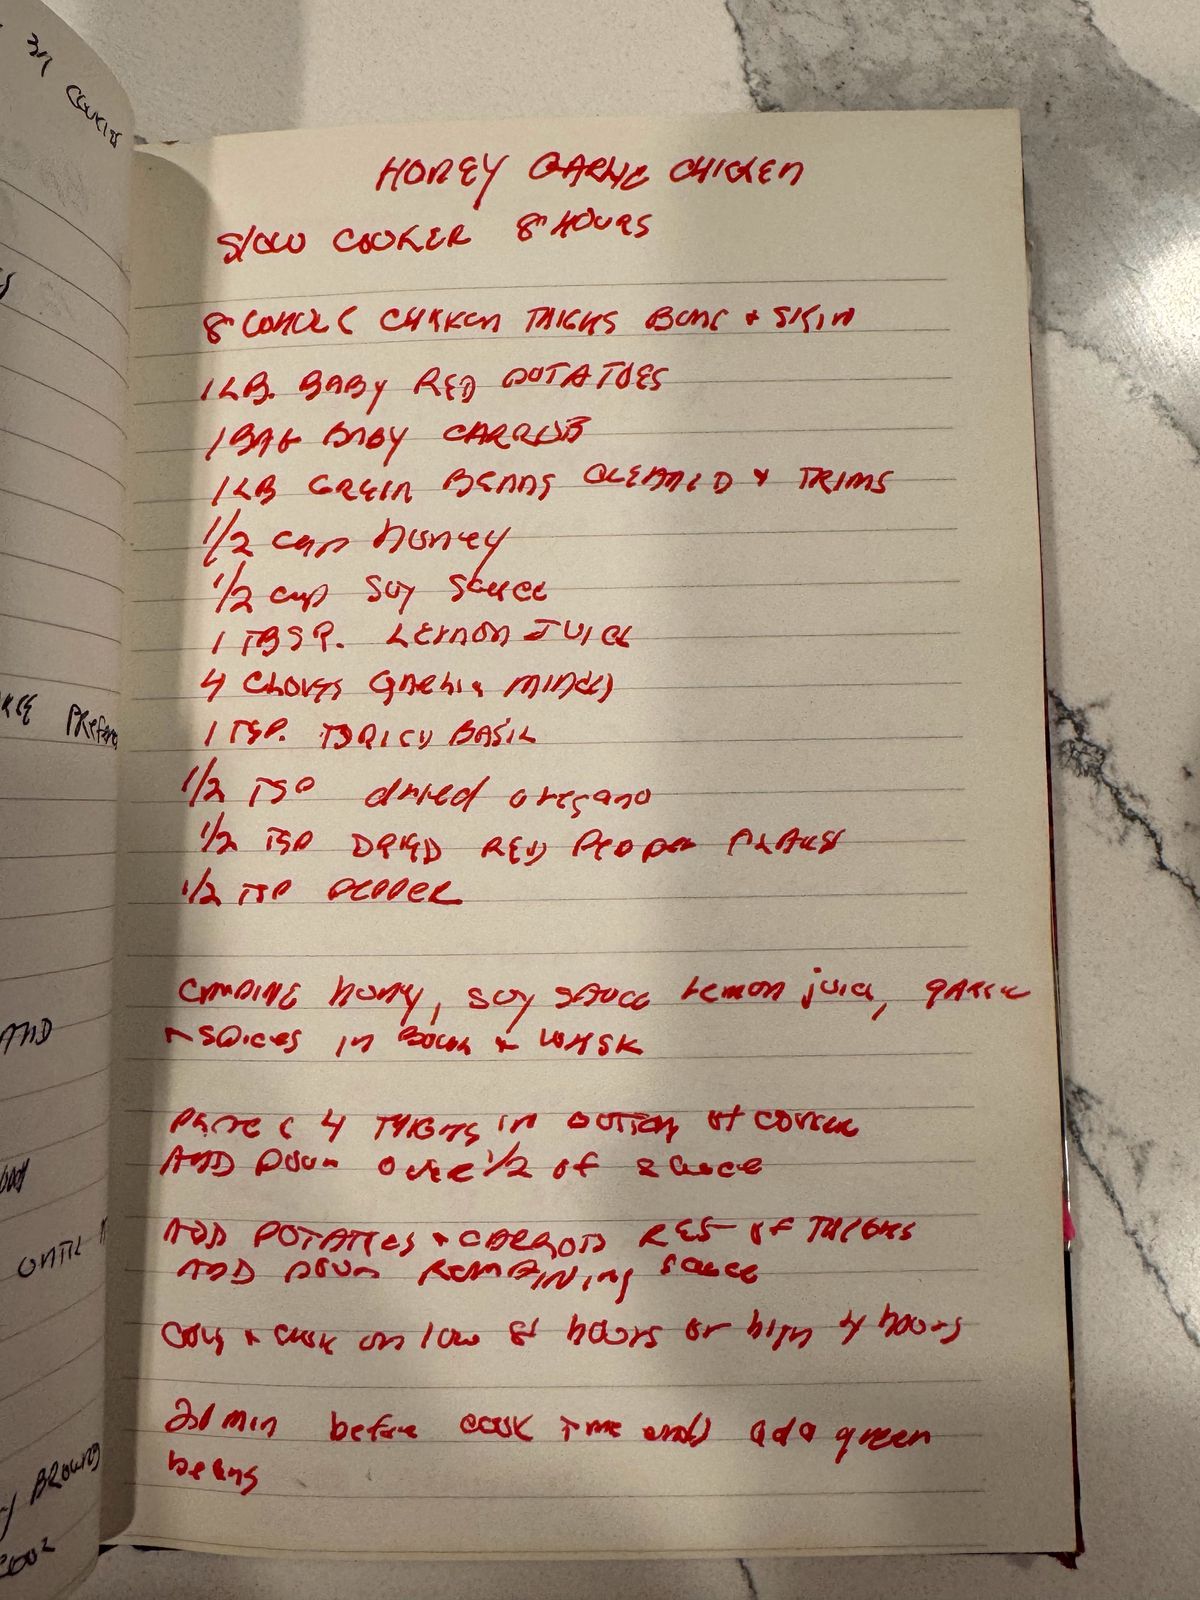 3n
COOKIES
HONEY GARLIC CHICKEN
SLOW COOKER 8 HOURS
8 CHICKEN THIGHS BONE + SKIN
1 LB. BABY RED POTATOES
1 BAG BABY CARROTS
1 LB GREEN BEANS CLEANED & TRIMS
1/2 cup honey
1/2 cup soy sauce
1 TBSP. LEMON JUICE
4 CLOVES GARLIC MINCED
1 TSP. BASIL
1/2 TSP dried oregano
1/2 TSP DRIED RED PEPPER FLAKES
1/2 TSP PEPPER
COMBINE honey, SOY SAUCE Lemon juice, GARLIC
+ SPICES in BOWL + WHISK
PLACE 4 THIGHS IN BOTTOM of COOKER
AND POUR OVER 1/2 of sauce
ADD POTATOES + CARROTS REST of THIGHS
AND POUR REMAINING sauce
COVER + COOK on low 8 hours or high 4 hours
20 min before COOK TIME ends add green
beans
PREFER
AND
UNTIL
BROWNED